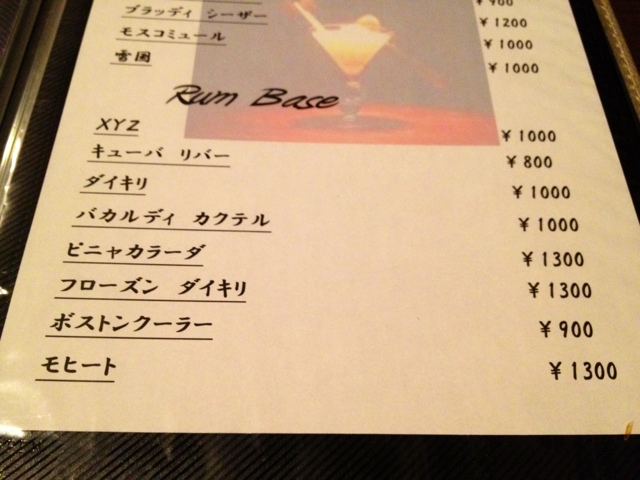 ¥900
ブラッディ シーザー ¥1200
モスコミュール ¥1000
雪国 ¥1000
Rum Base
XYZ ¥1000
キューバ リバー ¥800
ダイキリ ¥1000
バカルディ カクテル ¥1000
ピニャカラーダ ¥1300
フローズン ダイキリ ¥1300
ボストンクーラー ¥900
モヒート ¥1300